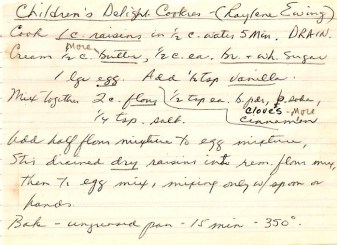 Children's Delight Cookies - (Raylene Ewing)
Cook 1 c. raisins in 1/2 c. water 5 Min. DRAIN.
More
Cream 1/2 c. butter, 1/2 c. ea. br. + wh. sugar
1 lge egg. Add 1/2 tsp vanilla.
Mix together 2 c. flour 1/2 tsp ea. b. pdr, b. soda,
cloves - More
1/4 tsp. salt. cinnamon
Add half flour mixture to egg mixture,
Stir drained dry raisins into rem. flour mix,
then to egg mix, mixing only w/ spoon or
hands.
Bake - ungreased pan - 15 min - 350°.